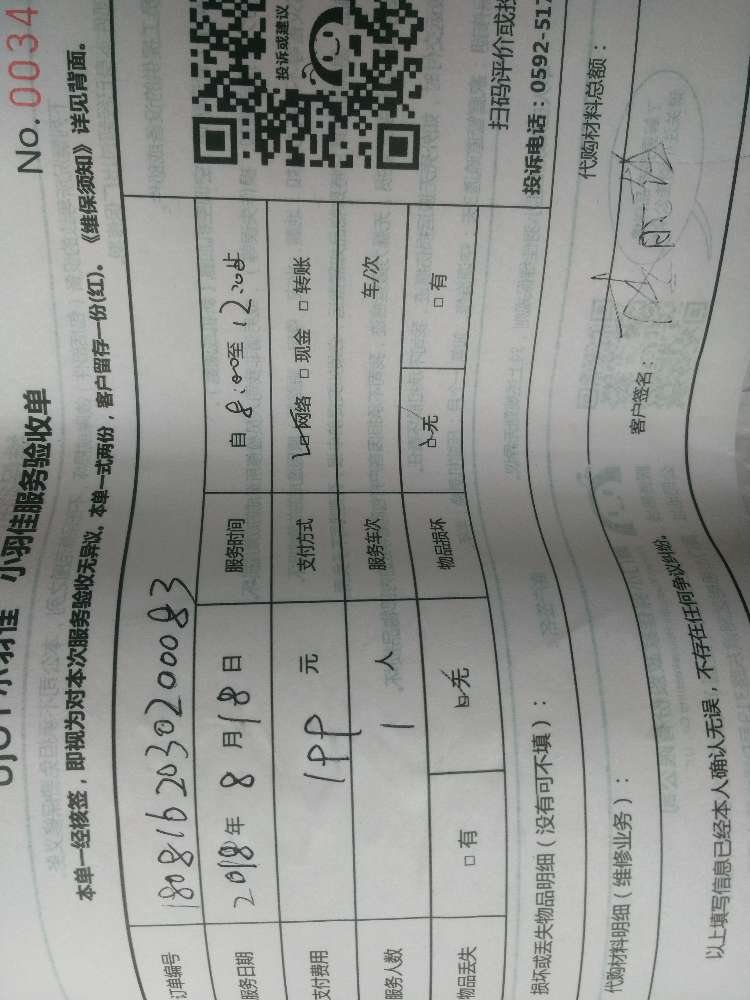 小羽佳服务验收单
No. 0034
本单一经核签，即视为对本次服务验收无异议。本单一式两份，客户留存一份(红)。《维保须知》详见背面。
订单编号 18081620302000083
服务日期 2018年 8 月 18 日 服务时间 自 8:00至 12:00止
支付费用 199 元 支付方式 □网络 □现金 □转账
服务人数 1 人 服务车次 车/次
物品丢失 □有 □无 物品损坏 □无 □有
投诉或建议
扫码评价或投
投诉电话：0592-517
损坏或丢失物品明细（没有可不填）：
代购材料明细（维修业务）：
代购材料总额：
以上填写信息已经本人确认无误，不存在任何争议纠纷。
客户签名：